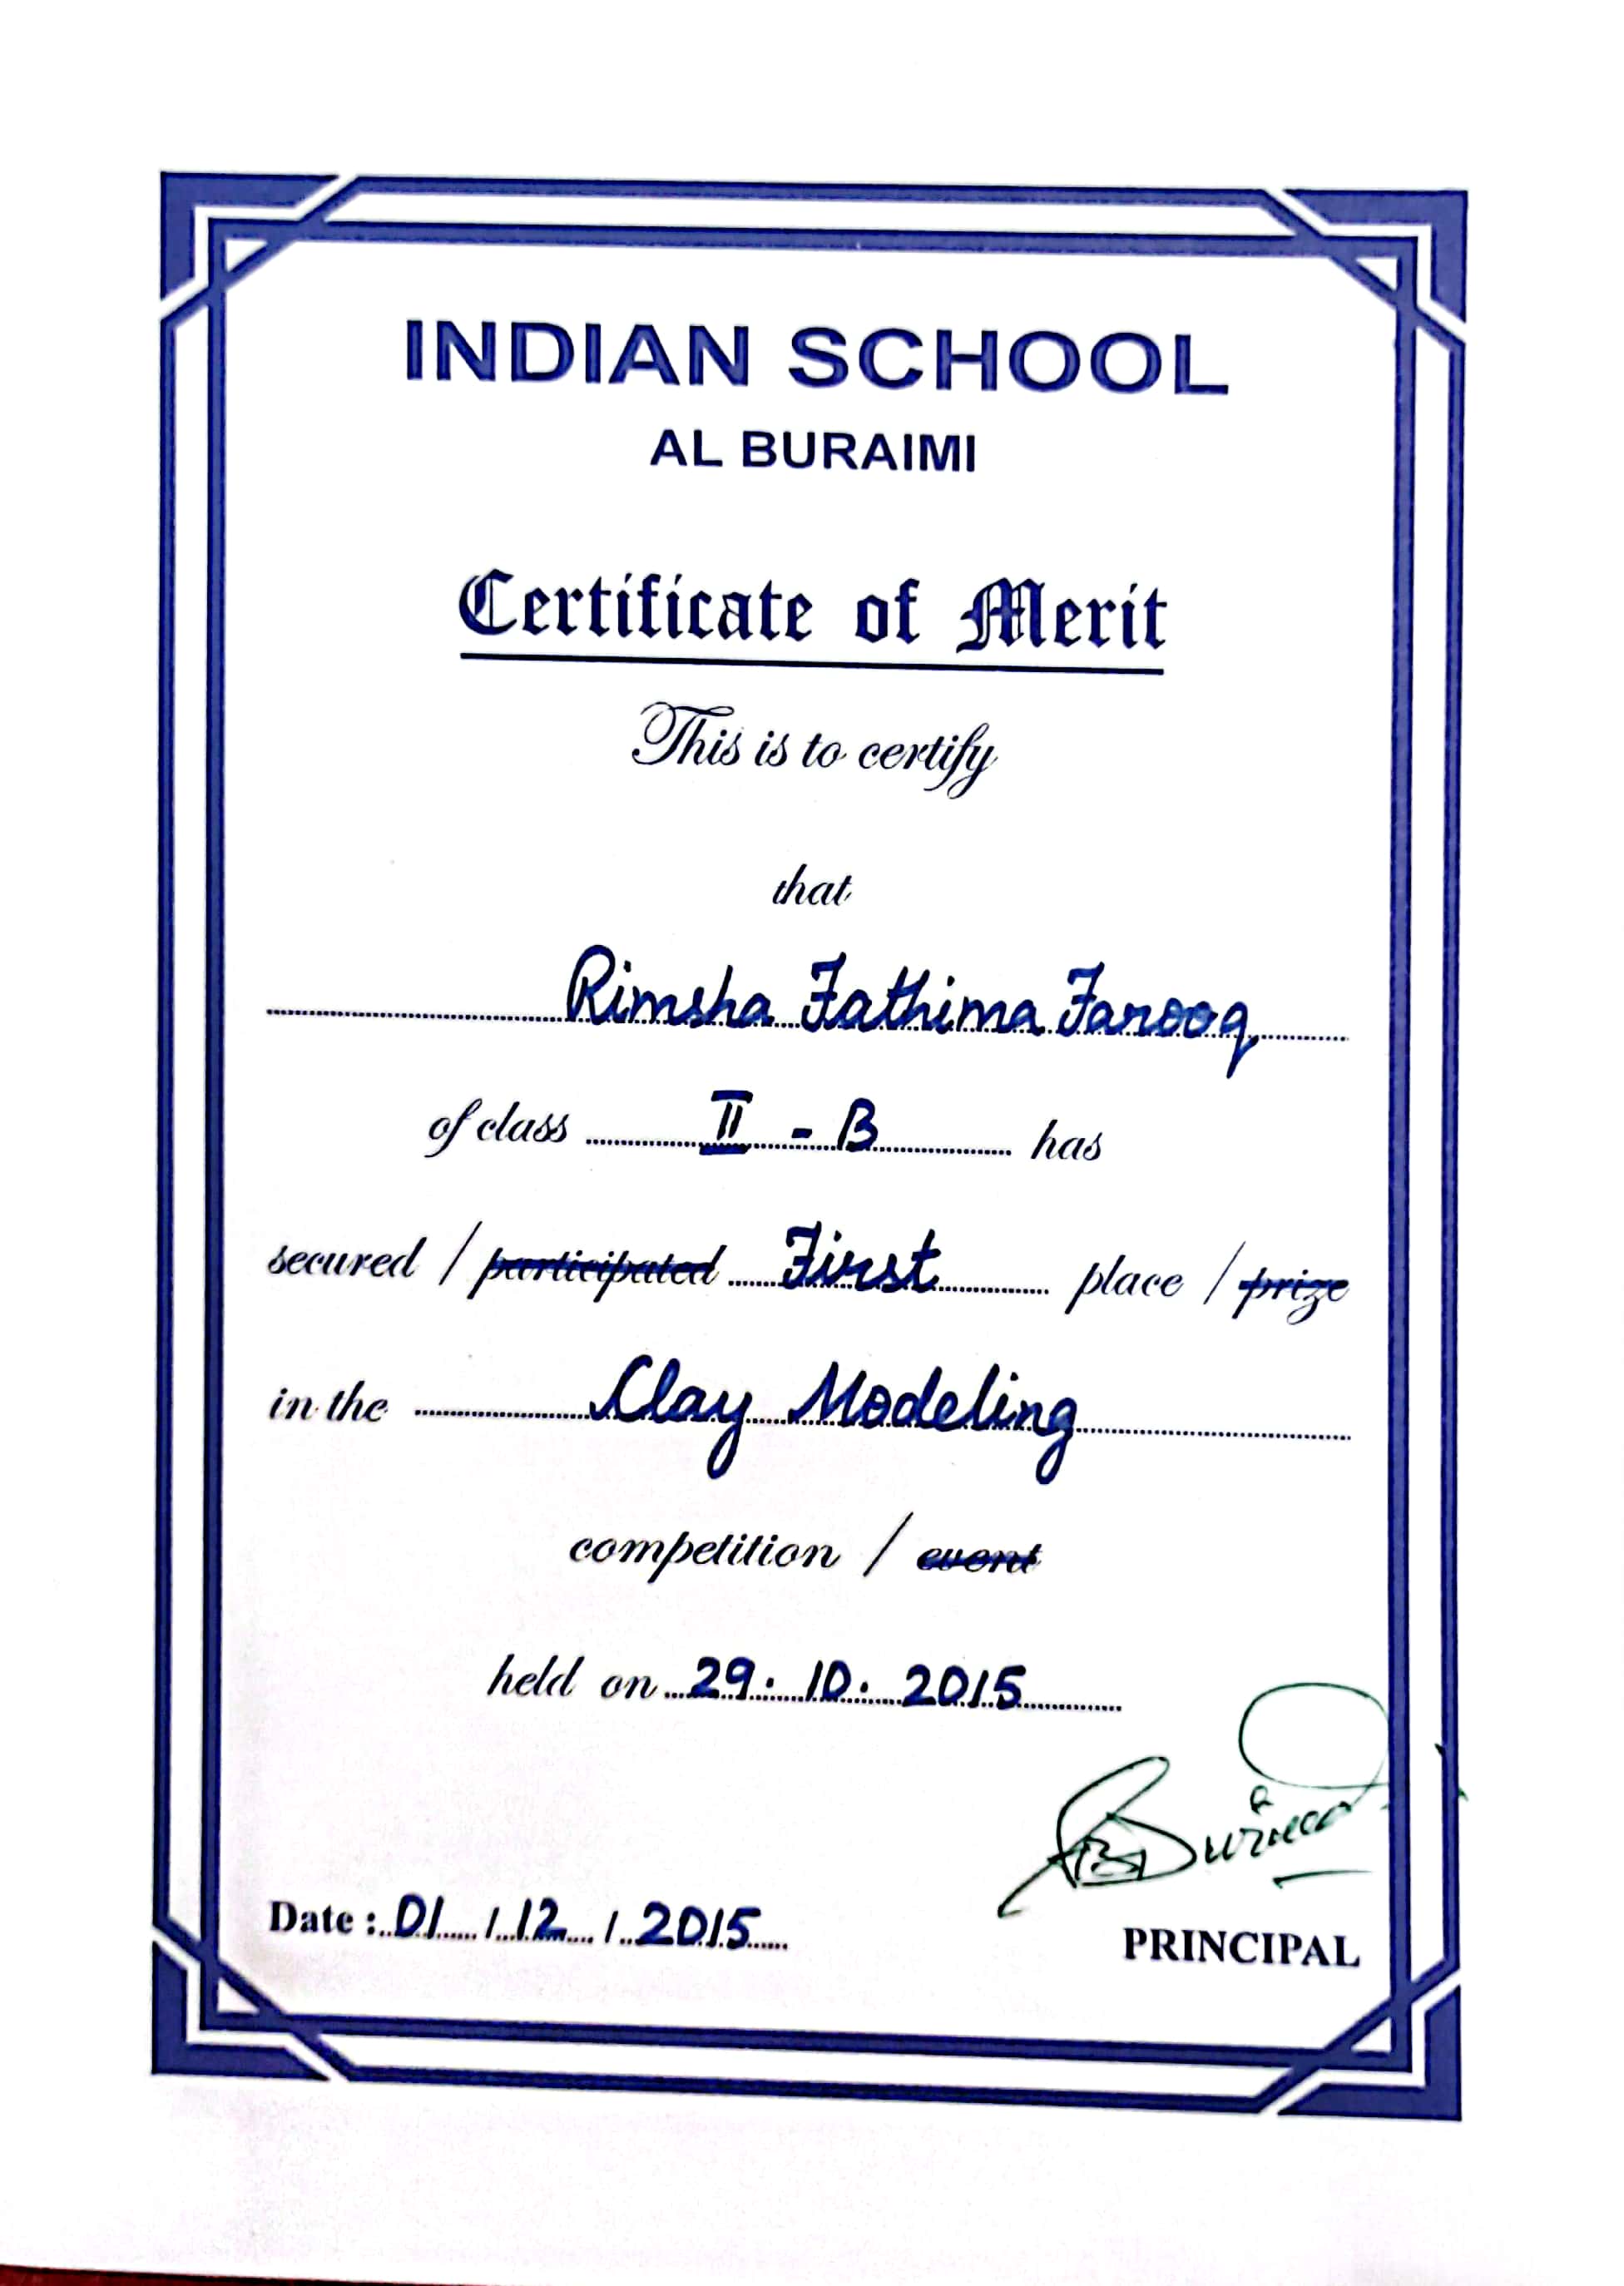 INDIAN SCHOOL
AL BURAIMI
Certificate of Merit
This is to certify
that
Rimsha Fathima Farooq
of class II - B has
secured / participated First place / prize
in the Clay Modeling
competition / event
held on 29. 10. 2015
Date : 01 / 12 / 2015
PRINCIPAL